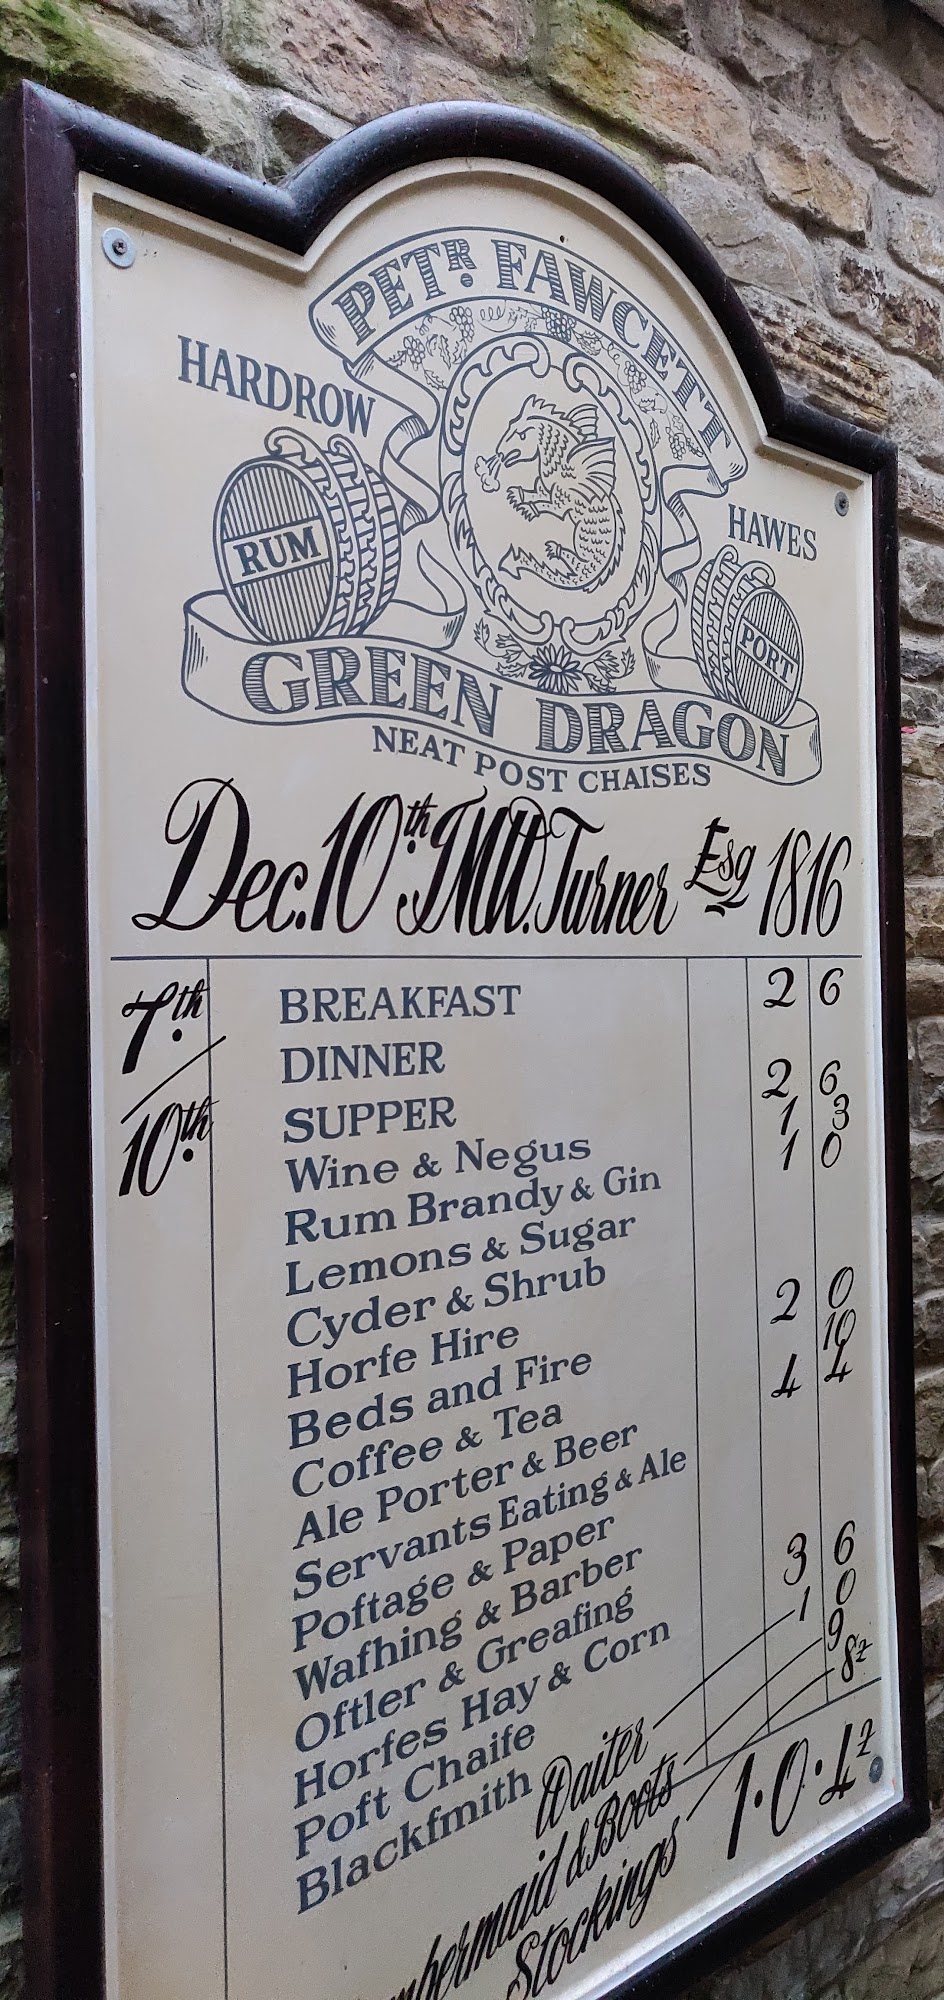 PETR. FAWCETT
HARDROW
HAWES
RUM
PORT
GREEN DRAGON
NEAT POST CHAISES
Dec. 10th. JMW. Turner Esq 1816
7th.
10th.
BREAKFAST 2 6
DINNER
SUPPER 2 6
Wine & Negus 1 3
Rum Brandy & Gin 1 0
Lemons & Sugar
Cyder & Shrub
Horfe Hire 2 0
Beds and Fire 10
Coffee & Tea 4 4
Ale Porter & Beer
Servants Eating & Ale
Poftage & Paper
Wafhing & Barber 3 6
Oftler & Greafing
Horfes Hay & Corn
Poft Chaife
Blackfmith
Waiter 1 0
& Boots 9
Stockings 8z
1.0.4z